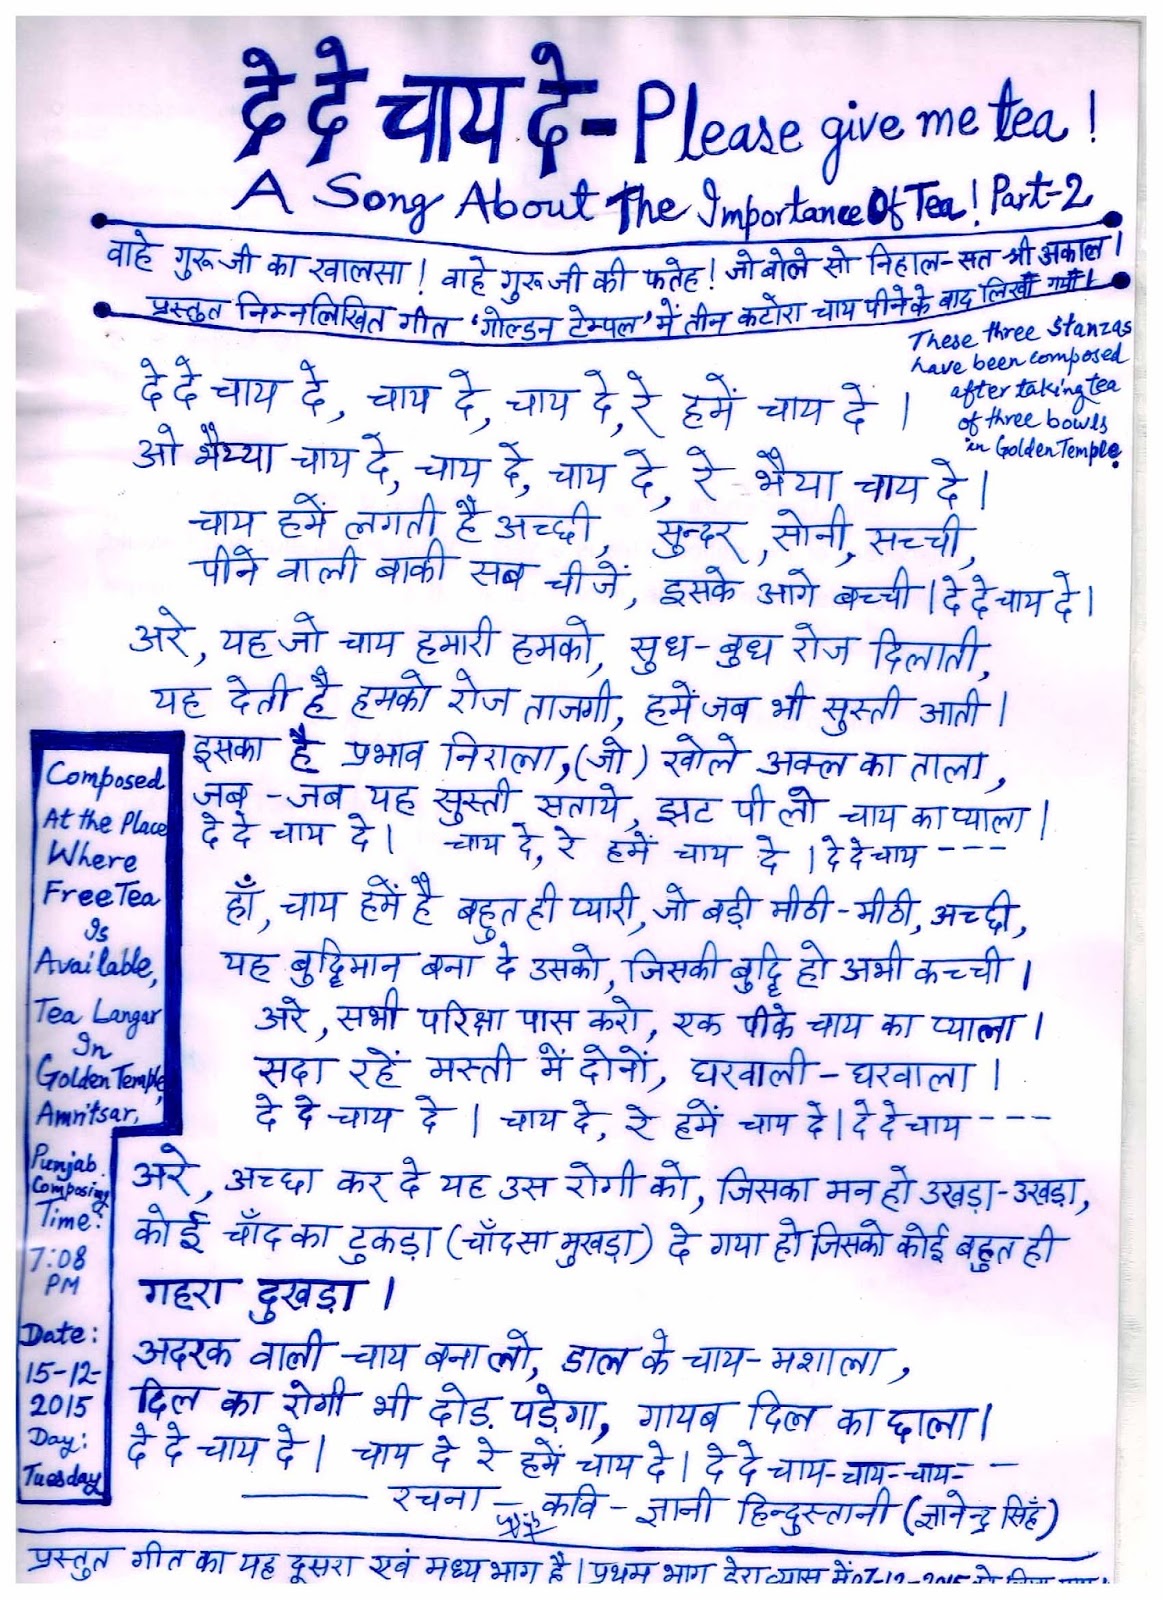 दे दे चाय दे-Please give me tea !
A Song About The Importance Of Tea! Part-2
वाहे गुरू जी का खालसा ! वाहे गुरू जी की फतेह ! जो बोले सो निहाल-सत श्री अकाल ।
प्रस्तुत निम्नलिखित गीत 'गोल्डन टेम्पल' में तीन कटोरा चाय पीने के बाद लिखा गया ।
These three stanzas
have been composed
after taking tea
of three bowls
in Golden Temple.
दे दे चाय दे, चाय दे, चाय दे, रे हमें चाय दे ।
ओ भैय्या चाय दे, चाय दे, चाय दे, रे भैया चाय दे ।
चाय हमें लगती है अच्छी, सुन्दर, सोनी, सच्ची,
पीने वाली बाकी सब चीजें, इसके आगे बच्ची । दे दे चाय दे ।
अरे, यह जो चाय हमारी हमको, सुध-बुध रोज दिलाती,
यह देती है हमको रोज ताजगी, हमें जब भी सुस्ती आती ।
इसका है प्रभाव निराला, (जो) खोले अक्ल का ताला,
जब-जब यह सुस्ती सताये, झट पी लो चाय का प्याला ।
दे दे चाय दे । चाय दे, रे हमें चाय दे । दे दे चाय ---
हाँ, चाय हमें है बहुत ही प्यारी, जो बड़ी मीठी-मीठी, अच्छी,
यह बुद्धिमान बना दे उसको, जिसकी बुद्धि हो अभी कच्ची ।
अरे, सभी परिक्षा पास करो, एक पीके चाय का प्याला ।
सदा रहें मस्ती में दोनों, घरवाली-घरवाला ।
दे दे चाय दे । चाय दे, रे हमें चाय दे । दे दे चाय ---
अरे, अच्छा कर दे यह उस रोगी को, जिसका मन हो उखड़ा-उखड़ा,
कोई चाँद का टुकड़ा (चाँद सा मुखड़ा) दे गया हो जिसको कोई बहुत ही
गहरा दुखड़ा ।
अदरक वाली चाय बना लो, डाल के चाय-मशाला,
दिल का रोगी भी दोड़ पड़ेगा, गायब दिल का छाला ।
दे दे चाय दे । चाय दे रे हमें चाय दे । दे दे चाय-चाय-चाय--
रचना - कवि - ज्ञानी हिन्दुस्तानी (ज्ञानेन्द्र सिहँ)
Composed
At the Place
Where
Free Tea
Is
Available,
Tea Langar
In
Golden Temple,
Amritsar,
Punjab.
Composing
Time:
7:08
PM
Date:
15-12-
2015
Day:
Tuesday
प्रस्तुत गीत का यह दूसरा एवं मध्य भाग है । प्रथम भाग डेरा व्यास में 07-12-2015